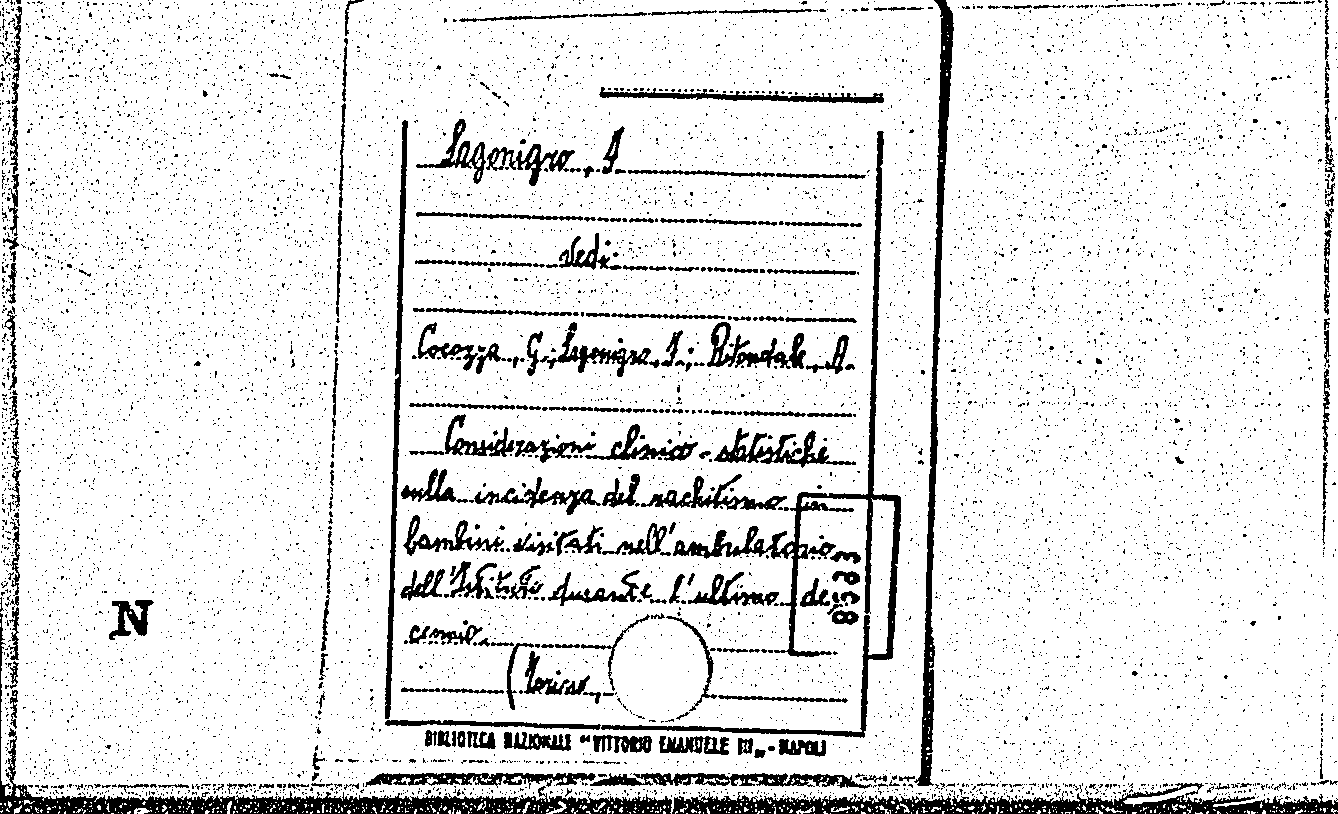 Lagonigro, I
vedi:
Cocozza, G.; Lagonigro, I.; Ritondale, A.
Considerazioni clinico-statistiche
sulla incidenza del rachitismo in
bambini visitati nell'ambulatorio
dell'Istituto durante l'ultimo de=
cennio.
(Torino,
8583
N
BIBLIOTECA NAZIONALE "VITTORIO EMANUELE III„ - NAPOLI